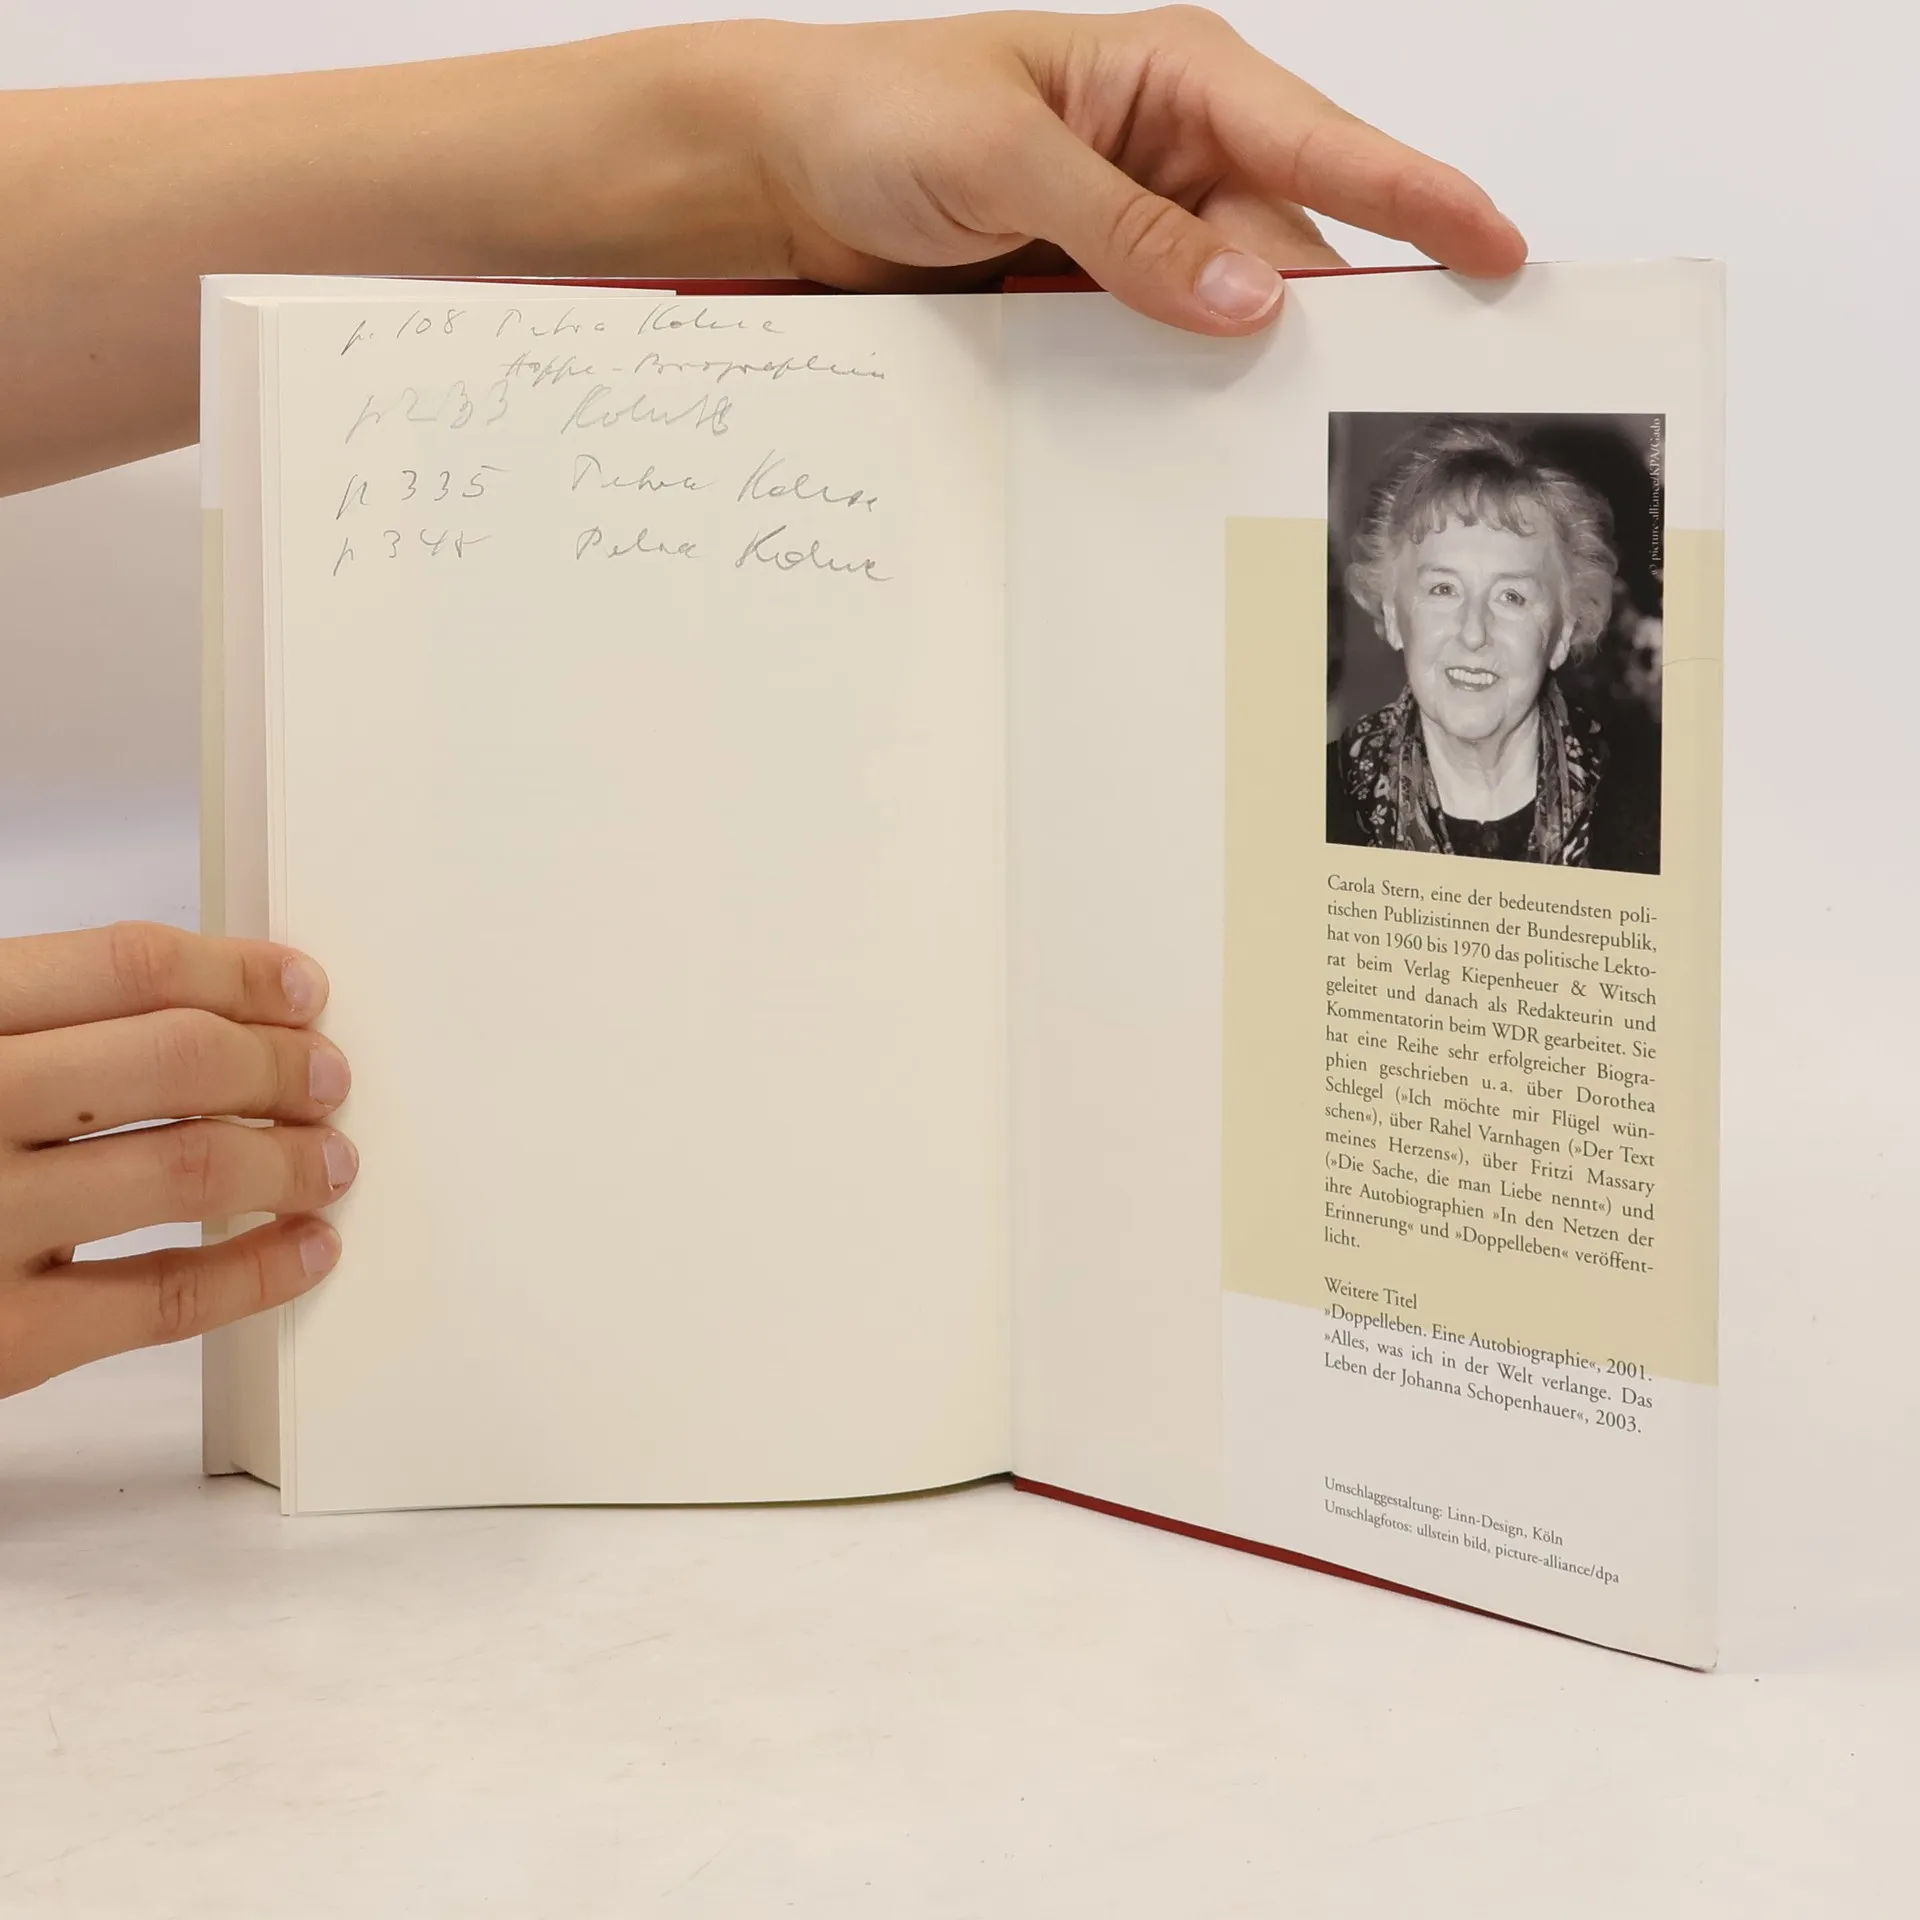 p. 108 Petra Kohse
Hoppe-Biographin
p 233 Kohse
p 335 Petra Kohse
p 348 Petra Kohse
© picture-alliance/KPA/Gado
Carola Stern, eine der bedeutendsten poli-
tischen Publizistinnen der Bundesrepublik,
hat von 1960 bis 1970 das politische Lekto-
rat beim Verlag Kiepenheuer & Witsch
geleitet und danach als Redakteurin und
Kommentatorin beim WDR gearbeitet. Sie
hat eine Reihe sehr erfolgreicher Biogra-
phien geschrieben u. a. über Dorothea
Schlegel (»Ich möchte mir Flügel wün-
schen«), über Rahel Varnhagen (»Der Text
meines Herzens«), über Fritzi Massary
(»Die Sache, die man Liebe nennt«) und
ihre Autobiographien »In den Netzen der
Erinnerung« und »Doppelleben« veröffent-
licht.
Weitere Titel
»Doppelleben. Eine Autobiographie«, 2001.
»Alles, was ich in der Welt verlange. Das
Leben der Johanna Schopenhauer«, 2003.
Umschlaggestaltung: Linn-Design, Köln
Umschlagfotos: ullstein bild, picture-alliance/dpa